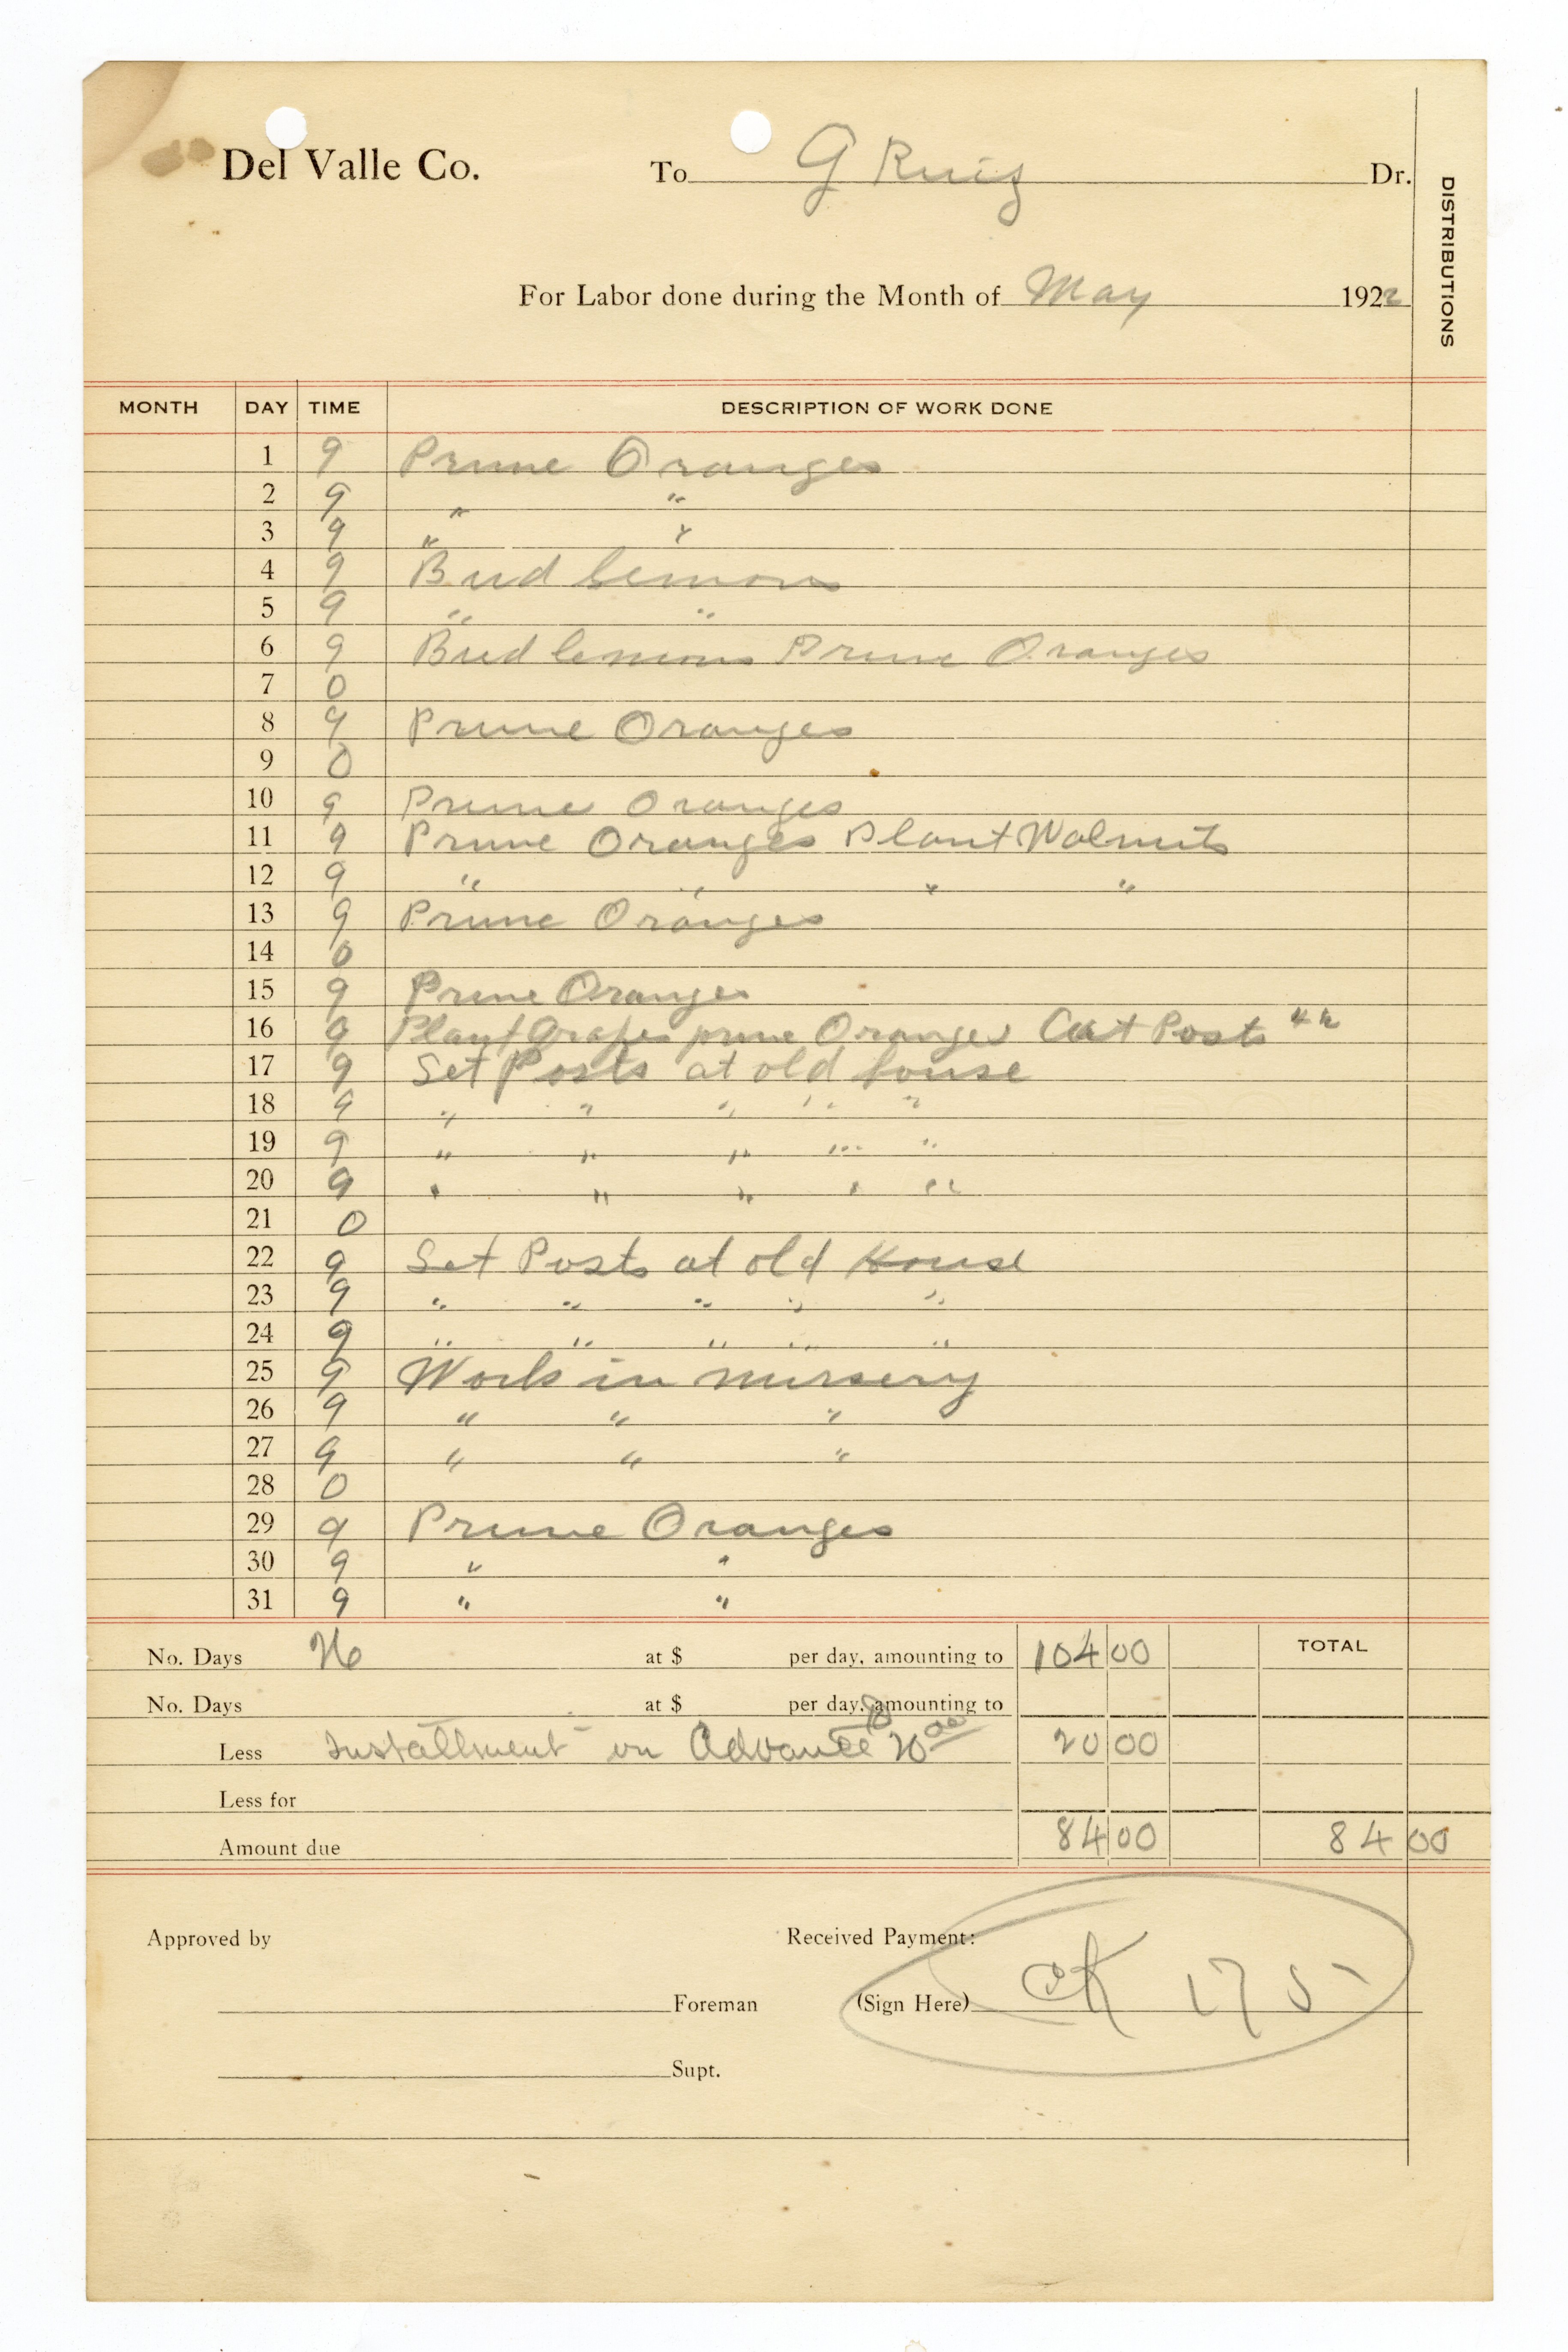 Del Valle Co. To G Ruiz Dr.
DISTRIBUTIONS
For Labor done during the Month of May 1922
MONTH DAY TIME DESCRIPTION OF WORK DONE
1 9 Prune Oranges
2 9 " "
3 9 " "
4 9 Bud lemons
5 9 " "
6 9 Bud lemons Prune Oranges
7 0
8 9 Prune Oranges
9 0
10 9 Prune Oranges
11 9 Prune Oranges Plant Walnuts
12 9 " " " "
13 9 Prune Oranges
14 0
15 9 Prune Oranges
16 9 Plant Grapes prune Oranges Cut Posts
17 9 Set Posts at old house
18 9 " " " " "
19 9 " " " " "
20 9 " " " " "
21 0
22 9 Set Posts at old House
23 9 " " " " "
24 9 " " " " "
25 9 Work in nursery
26 9 " " "
27 9 " " "
28 0
29 9 Prune Oranges
30 9 " "
31 9 " "
No. Days 26 at $ per day, amounting to 104 00 TOTAL
No. Days at $ per day, amounting to
Less Installment on Advance 20 00 20 00
Less for
Amount due 84 00 84 00
Approved by Received Payment:
Foreman (Sign Here) CK 175
Supt.